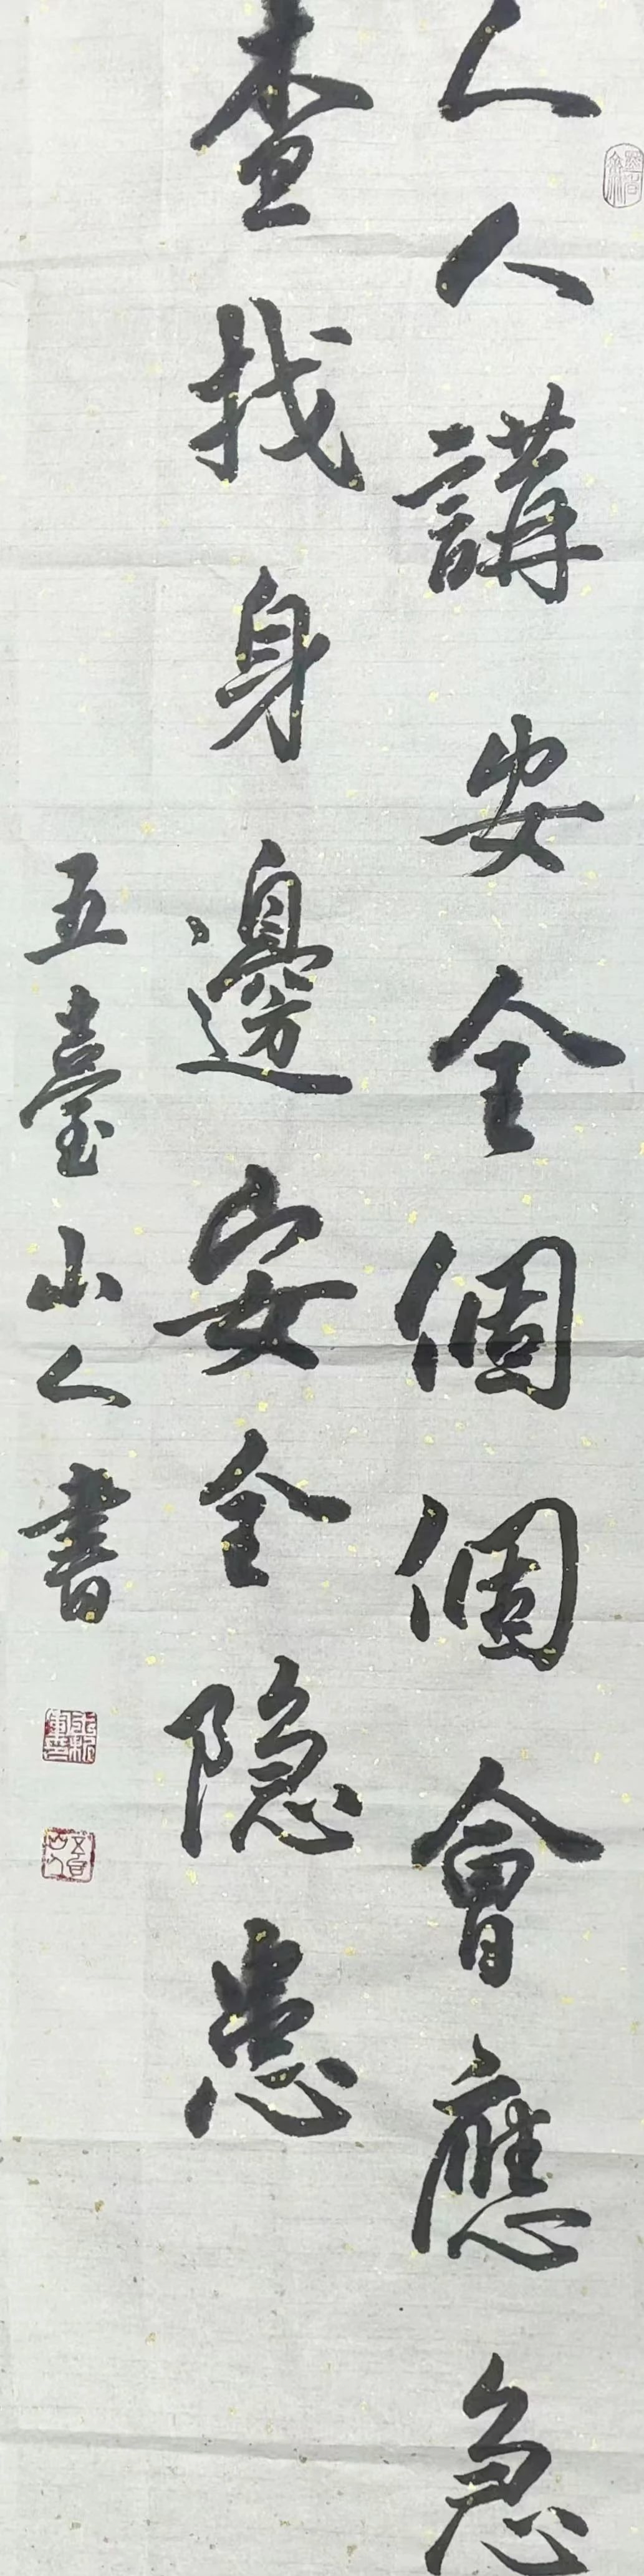 人人講安全個個會應急
查找身邊安全隐患
五臺山人書